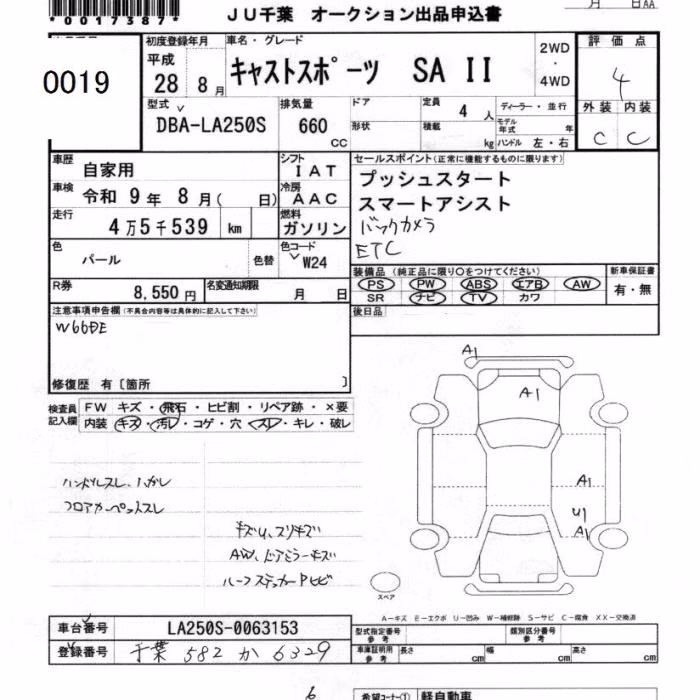 *00017387*
JU千葉 オークション出品申込書
月 日AA
0019
初度登録年月 車名・グレード 2WD・4WD 評価点
平成28 8月 キャストスポーツ SA II 4
型式 排気量 ドア 定員 4人 ディーラー・並行 外装 内装
DBA-LA250S 660cc 形状 積載 kg モデル年式 年 ハンドル 左・右 C C
車歴 自家用 シフト IAT セールスポイント(正常に機能するものに限ります)
車検 令和 9年 8月( 日) 冷房 AAC プッシュスタート
スマートアシスト
走行 4万5千539 km 燃料 ガソリン バックカメラ
ETC
色 パール 色替 色コード W24
装備品 (純正品に限り○をつけてください) 新車保証書
PS PW ABS エアB AW 有・無
SR ナビ TV カワ
R券 8,550円 名変通知期限 月 日
後日品
注意事項申告欄(不具合内容等は具体的に記入して下さい)
修復歴 有〔箇所 〕
検査員記入欄 FW キズ・飛石・ヒビ割・リペア跡・×要
内装 キズ・汚レ・コゲ・穴・スレ・キレ・破レ
A1
A1
A1
U1
A1
ハンドルスレ、ハガレ
フロアカーペットスレ
キズU、スリキズ
AW、ドアミラーキズ
スペア
A-キズ E-エクボ U-凹み W-補修跡 S-サビ C-腐食 XX-交換済
車台番号 LA250S-0063153
型式指定番号 参考 類別区分番号 参考
登録番号 千葉 582 か 6329
車庫証明用 参考 長さ cm 幅 cm 高さ cm
6
希望コーナー① 軽自動車